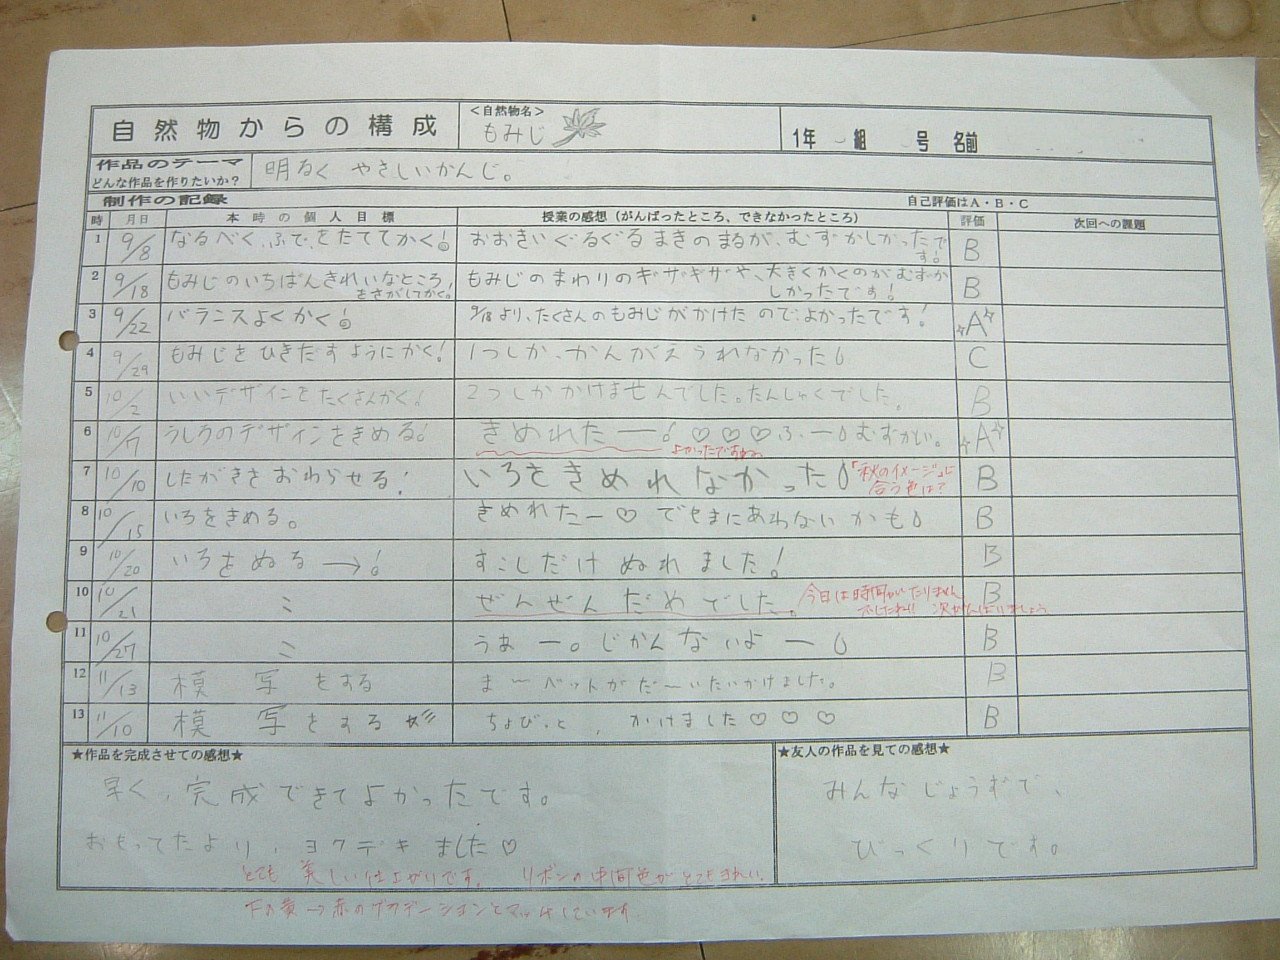 自然物からの構成
＜自然物名＞
もみじ
1年 組 号 名前
作品のテーマ
どんな作品を作りたいか？
明るく やさしいかんじ。
制作の記録
自己評価はA・B・C
時 月日 本時の個人目標 授業の感想（がんばったところ、できなかったところ） 評価 次回への課題
1 9/8 なるべく、ふで、をたててかく! おおきいぐるぐるまきのまるが、むずかしかったです! B
2 9/18 もみじのいちばんきれいなところ、をさがしてかく。 もみじのまわりのギザギザや、大きくかくのがむずかしかったです! B
3 9/22 バランスよくかく! 9/18より、たくさんのもみじがかけたのでよかったです! A
4 9/29 もみじをひきだすようにかく! 1つしか、かんがえうれなかった C
5 10/2 いいデザインをたくさんかく! 2つしかかけませんでした。たんしゃくでした。 B
6 10/7 うしろのデザインをきめる! きめれたー! ♡♡♡ふーむずかい。 A
よかったですね。
7 10/10 したがきをおわらせる! いろをきめれなかった B
「秋のイメージ」に
合う色は?
8 10/15 いろをきめる。 きめれたー♡ でもまにあわないかも B
9 10/20 いろをぬる→! すこしだけぬれました! B
10 10/21 〃 ぜんぜんだめでした。 B
今日は時間がたりません
でしたね!! 次がんばりましょう
11 10/27 〃 うぁー。じかんないよー B
12 11/13 模写をする ま〜ベットがだ〜いたいかけました。 B
13 11/10 模写をする ちょびっと、かけました♡♡♡ B
★作品を完成させての感想★
早く、完成できてよかったです。
おもってたより、ヨクデキました♡
とても美しい仕上がりです。 リボンの中間色がとてもきれい。
下の黄→赤のグラデーションとマッチしています。
★友人の作品を見ての感想★
みんなじょうずで、
びっくりです。